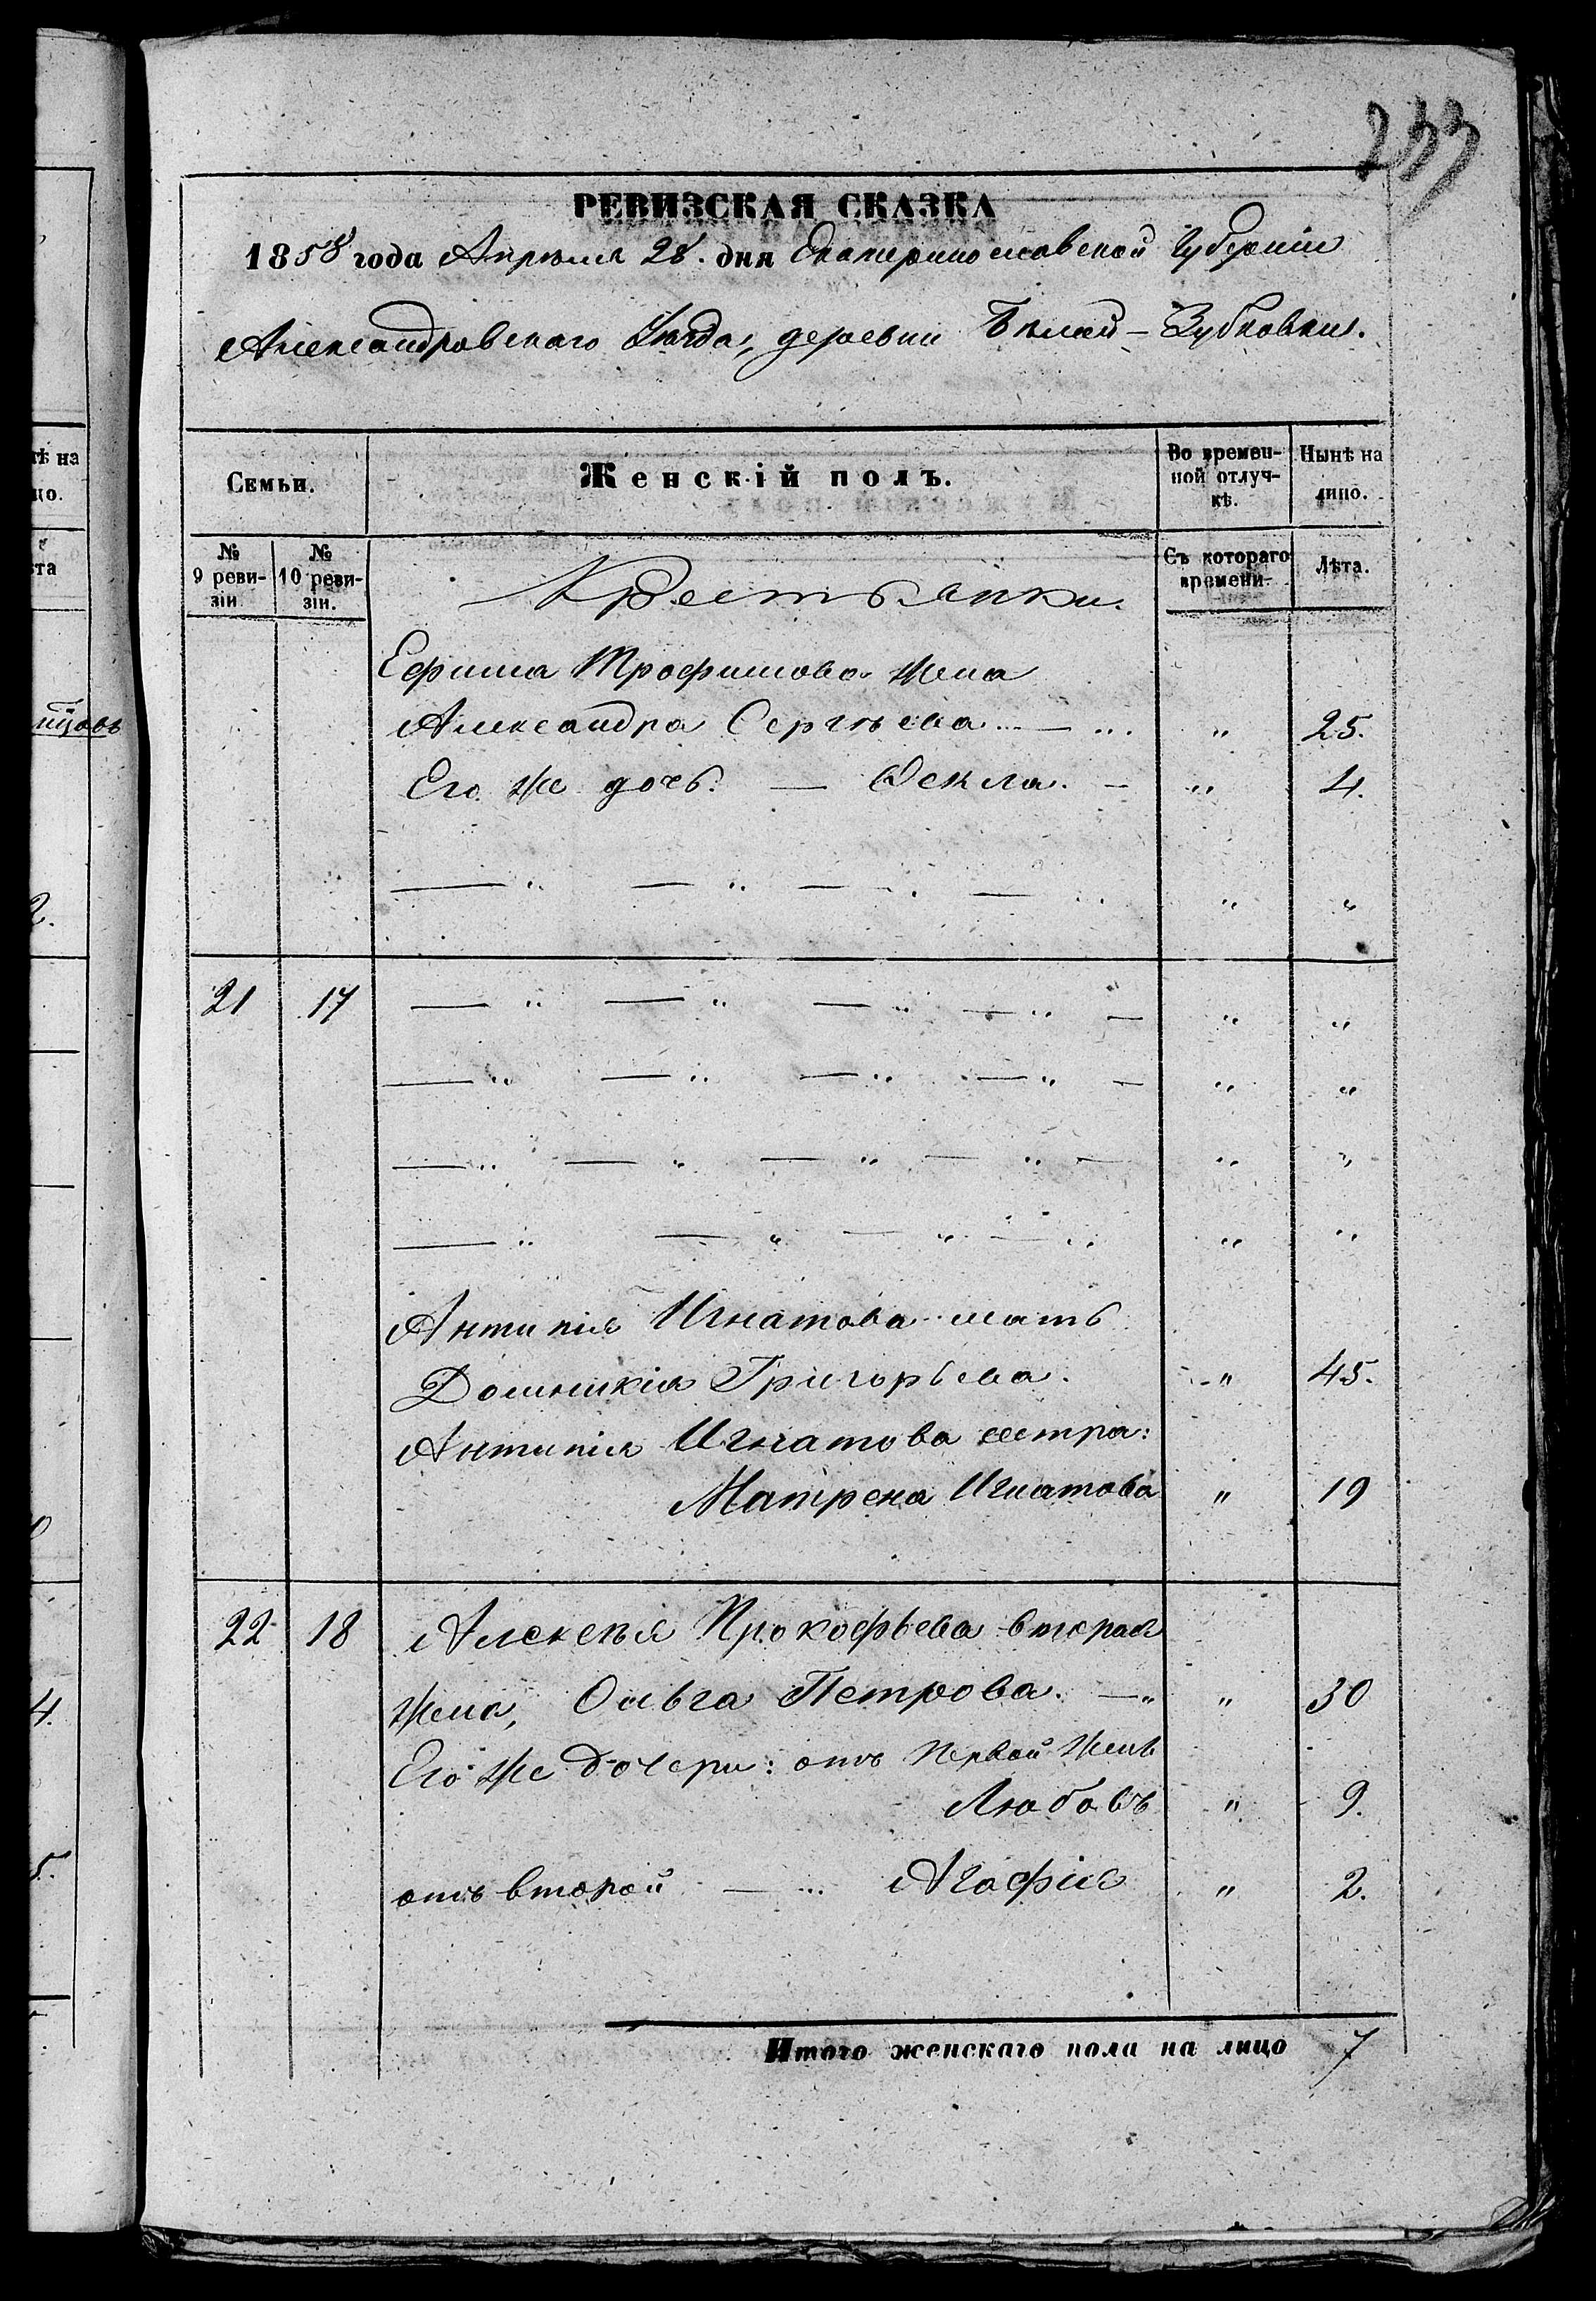 233
РЕВИЗСКАЯ СКАЗКА
1858 года Апрѣля 28. дня Екатеринославской Губерніи
Александровскаго Уѣзда, деревни Бѣлой-Зубковки.
Семьи.
Женскій полъ.
Во времен-
ной отлуч-
кѣ.
Нынѣ на
лицо.
№
9 реви-
зіи
№
10 реви-
зіи.
Съ котораго
времени
Лѣта.
Крестьянки.
Ефима Трофимова жена
Александра Сергѣева " 25.
Его же дочь. — Фекла. — " 4.
21 17
Антипія Игнатова мать
Домникія Григорьева. " 45.
Антипія Игнатова сестра:
Матрена Игнатова " 19
22 18 Алексѣя Прокофьева вторая
жена, Ольга Петрова. — " 30
Его же дочери: отъ первой жены
Любовь " 9.
отъ второй — Агафія " 2.
Итого женскаго пола на лицо 7